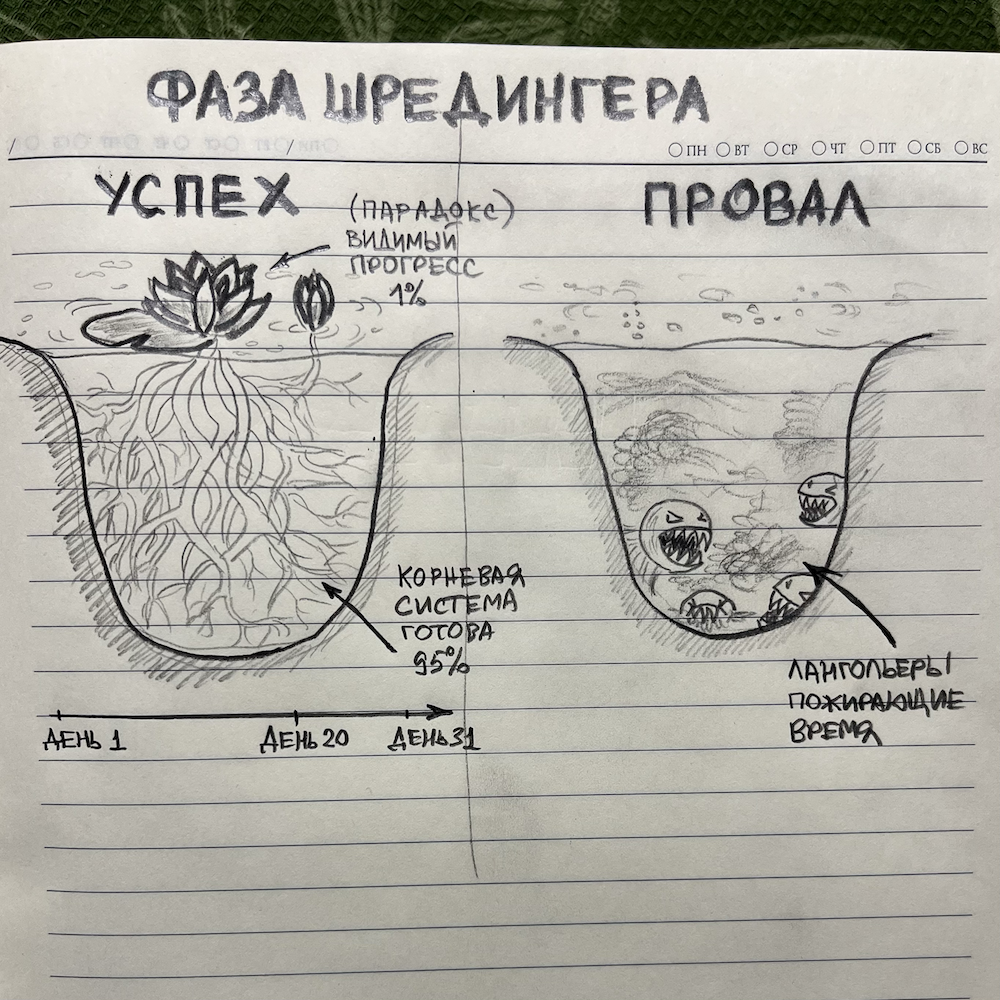 ФАЗА ШРЕДИНГЕРА
ПН ВТ СР ЧТ ПТ СБ ВС
УСПЕХ
(ПАРАДОКС)
ВИДИМЫЙ
ПРОГРЕСС
1%
КОРНЕВАЯ
СИСТЕМА
ГОТОВА
95%
ДЕНЬ 1
ДЕНЬ 20
ДЕНЬ 31
ПРОВАЛ
ЛАНГОЛЬЕРЫ
ПОЖИРАЮЩИЕ
ВРЕМЯ